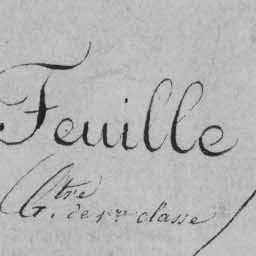 Feuille
(G.tre de 1re classe)